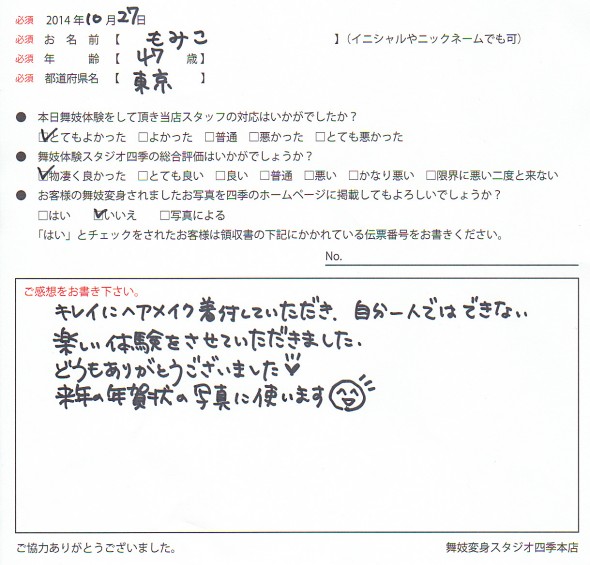 必須 2014年10月27日
必須 お名前【 もみこ 】(イニシャルやニックネームでも可)
必須 年齢【 47 歳】
必須 都道府県名【 東京 】
● 本日舞妓体験をして頂き当店スタッフの対応はいかがでしたか？
☑とてもよかった □よかった □普通 □悪かった □とても悪かった
● 舞妓体験スタジオ四季の総合評価はいかがでしょうか？
☑物凄く良かった □とても良い □良い □普通 □悪い □かなり悪い □限界に悪い二度と来ない
● お客様の舞妓変身されましたお写真を四季のホームページに掲載してもよろしいでしょうか？
□はい ☑いいえ □写真による
「はい」とチェックをされたお客様は領収書の下記にかかれている伝票番号をお書きください。
No.
ご感想をお書き下さい。
キレイにヘアメイク着付していただき、自分一人ではできない
楽しい体験をさせていただきました。
どうもありがとうございました
来年の年賀状の写真に使います
ご協力ありがとうございました。 舞妓変身スタジオ四季本店